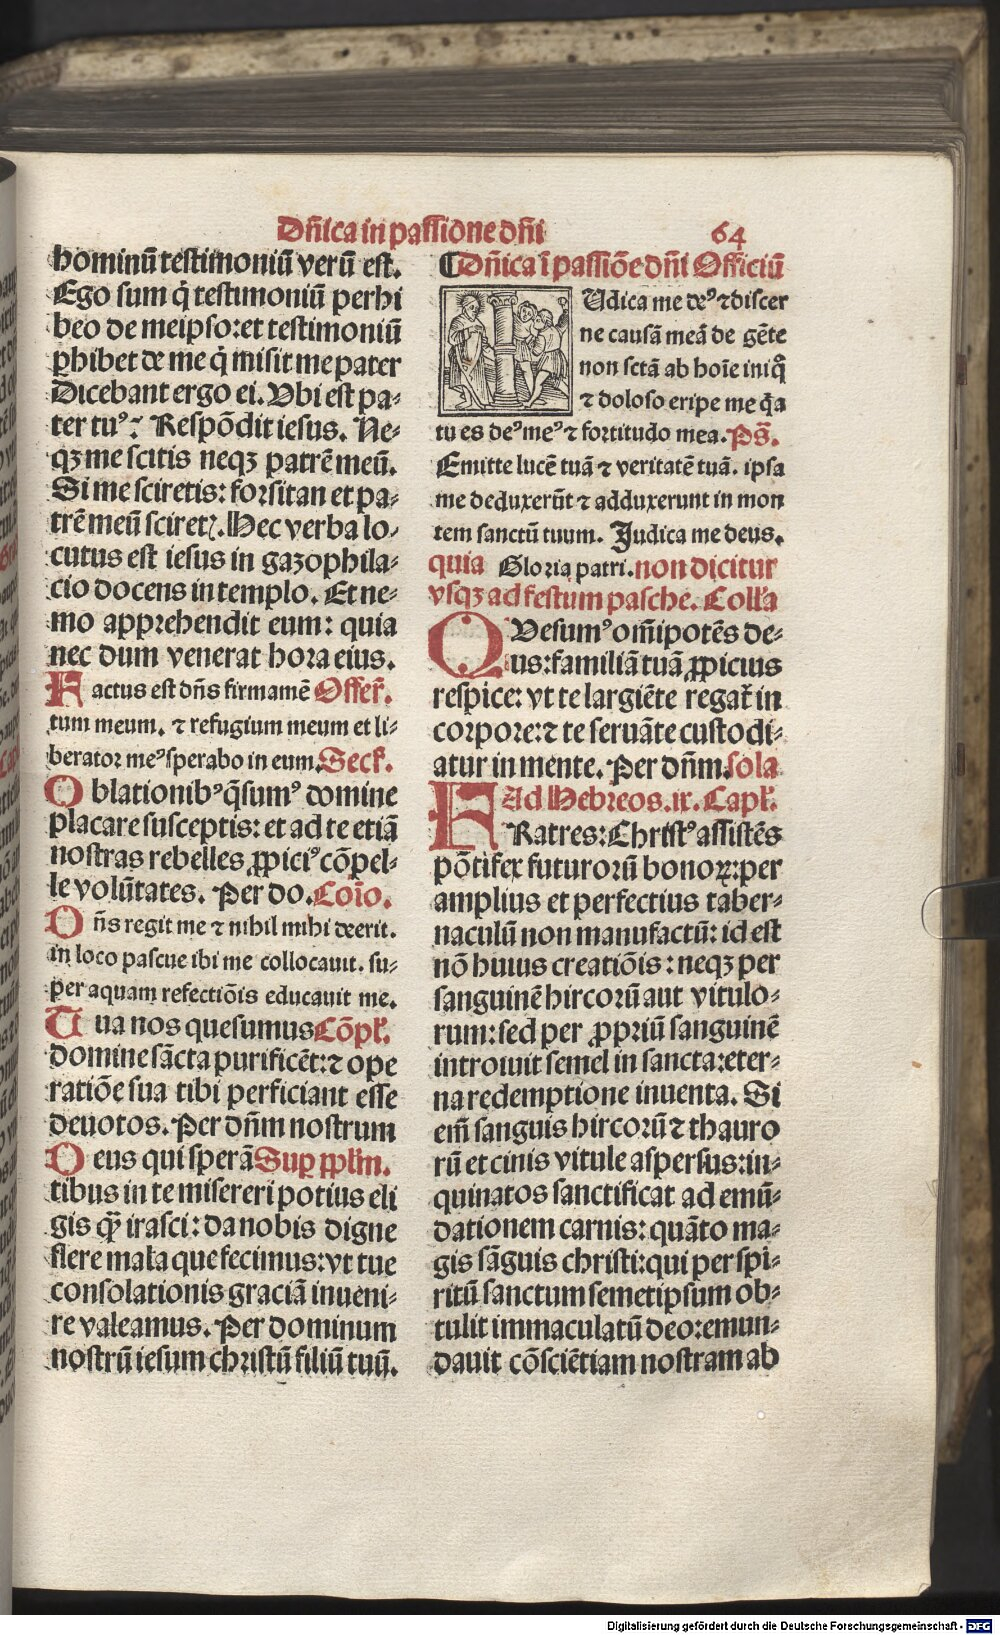 Dn̄ica in passione dn̄i 64
hominū testimoniū verū est.
Ego sum q̇ testimoniū perhi
beo de meipso: et testimoniū
phibet de me q̇ misit me pater
Dicebant ergo ei. Vbi est pa⸗
ter tuꝰ? Respōdit iesus. Ne⸗
qꝫ me scitis neqꝫ patrē meū.
Si me sciretis: forsitan et pa⸗
trē meū sciretꝭ. Hec verba lo⸗
cutus est iesus in gazophila⸗
cio docens in templo. Et ne⸗
mo apprehendit eum: quia
nec dum venerat hora eius.
Factus est dn̄s firmamē Offer̄.
tum meum. ⁊ refugium meum et li⸗
berator meꝰ sperabo in eum. Secr̄.
Oblationibꝰ q̄sumꝰ domine
placare susceptis: et ad te etiā
nostras rebelles ꝓpiciꝰ cōpel⸗
le volūtates. Per do. Coīo.
Dn̄s regit me ⁊ nihil mihi deerit.
in loco pascue ibi me collocauit. su⸗
per aquam refectiōis educauit me.
Tua nos quesumus Cōpl̄.
domine sācta purificēt: ⁊ ope
ratiōe sua tibi perficiant esse
deuotos. Per dn̄m nostrum
Deus qui sperā Sup ppl̄m.
tibus in te misereri potius eli
gis qꝫ̄ irasci: da nobis digne
flere mala que fecimus: vt tue
consolationis graciā inueni⸗
re valeamus. Per dominum
nostrū iesum christū filiū tuū.
¶ Dn̄ica ī passiōe dn̄i Officiū
Udica me deꝰ ⁊ discer
ne causā meā de gēte
non sctā ab hoīe iniq̄
⁊ doloso eripe me q̄a
tu es deꝰ meꝰ ⁊ fortitudo mea. Ps̄.
Emitte lucē tuā ⁊ veritatē tuā. ipsa
me deduxerūt ⁊ adduxerunt in mon
tem sanctū tuum. Judica me deus.
quia Gloria patri. non dicitur
vsqꝫ ad festum pasche. Coll̄a
QVesumꝰ om̄ipotēs de⸗
us: familiā tuā ꝓpicius
respice: vt te largiēte regat̄ in
corpore: ⁊ te seruāte custodi⸗
atur in mente. Per dn̄m. sola
Ad Hebreos. ix. Capl̄.
FRatres: Christꝰ assistēs
pōtifex futurorū bonoꝝ: per
amplius et perfectius taber⸗
naculū non manufactū: id est
nō huius creatiōis: neqꝫ per
sanguinē hircorū aut vitulo⸗
rum: sed per ꝓpriū sanguinē
introiuit semel in sancta: eter⸗
na redemptione inuenta. Si
em̄ sanguis hircorū ⁊ thauro
rū et cinis vitule aspersus: in⸗
quinatos sanctificat ad emū⸗
dationem carnis: quāto ma⸗
gis sāguis christi: qui per spi⸗
ritū sanctum semetipsum ob⸗
tulit immaculatū deo: emun⸗
dauit cōsciētiam nostram ab
Digitalisierung gefördert durch die Deutsche Forschungsgemeinschaft - DFG